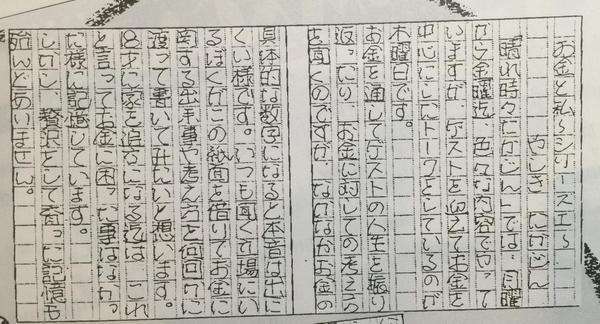 お金と私〜シリーズエ〜
やしき たかじん
「晴れ時々たかじん」では、月曜
から金曜迄、色々な内容でやって
いますが、ゲストを迎えてお金を
中心にしたトークとしているのが
木曜日です。
お金を通してゲストの人生を振り
返ったり、お金に対しての考え方
を聞くのですが、なかなかお金の
具体的な数字になると本音は出に
くい様です。いつも聞く立場にい
るぼくがこの紙面を借りてお金に
関する出来事や考え方を何回かに
渡って書いてみたいと想います。
才に家を になる迄は、これ
と言ってお金に困った事はなかっ
た様に記憶しています。
しかし、贅沢をして育った記憶も
殆んどありません。